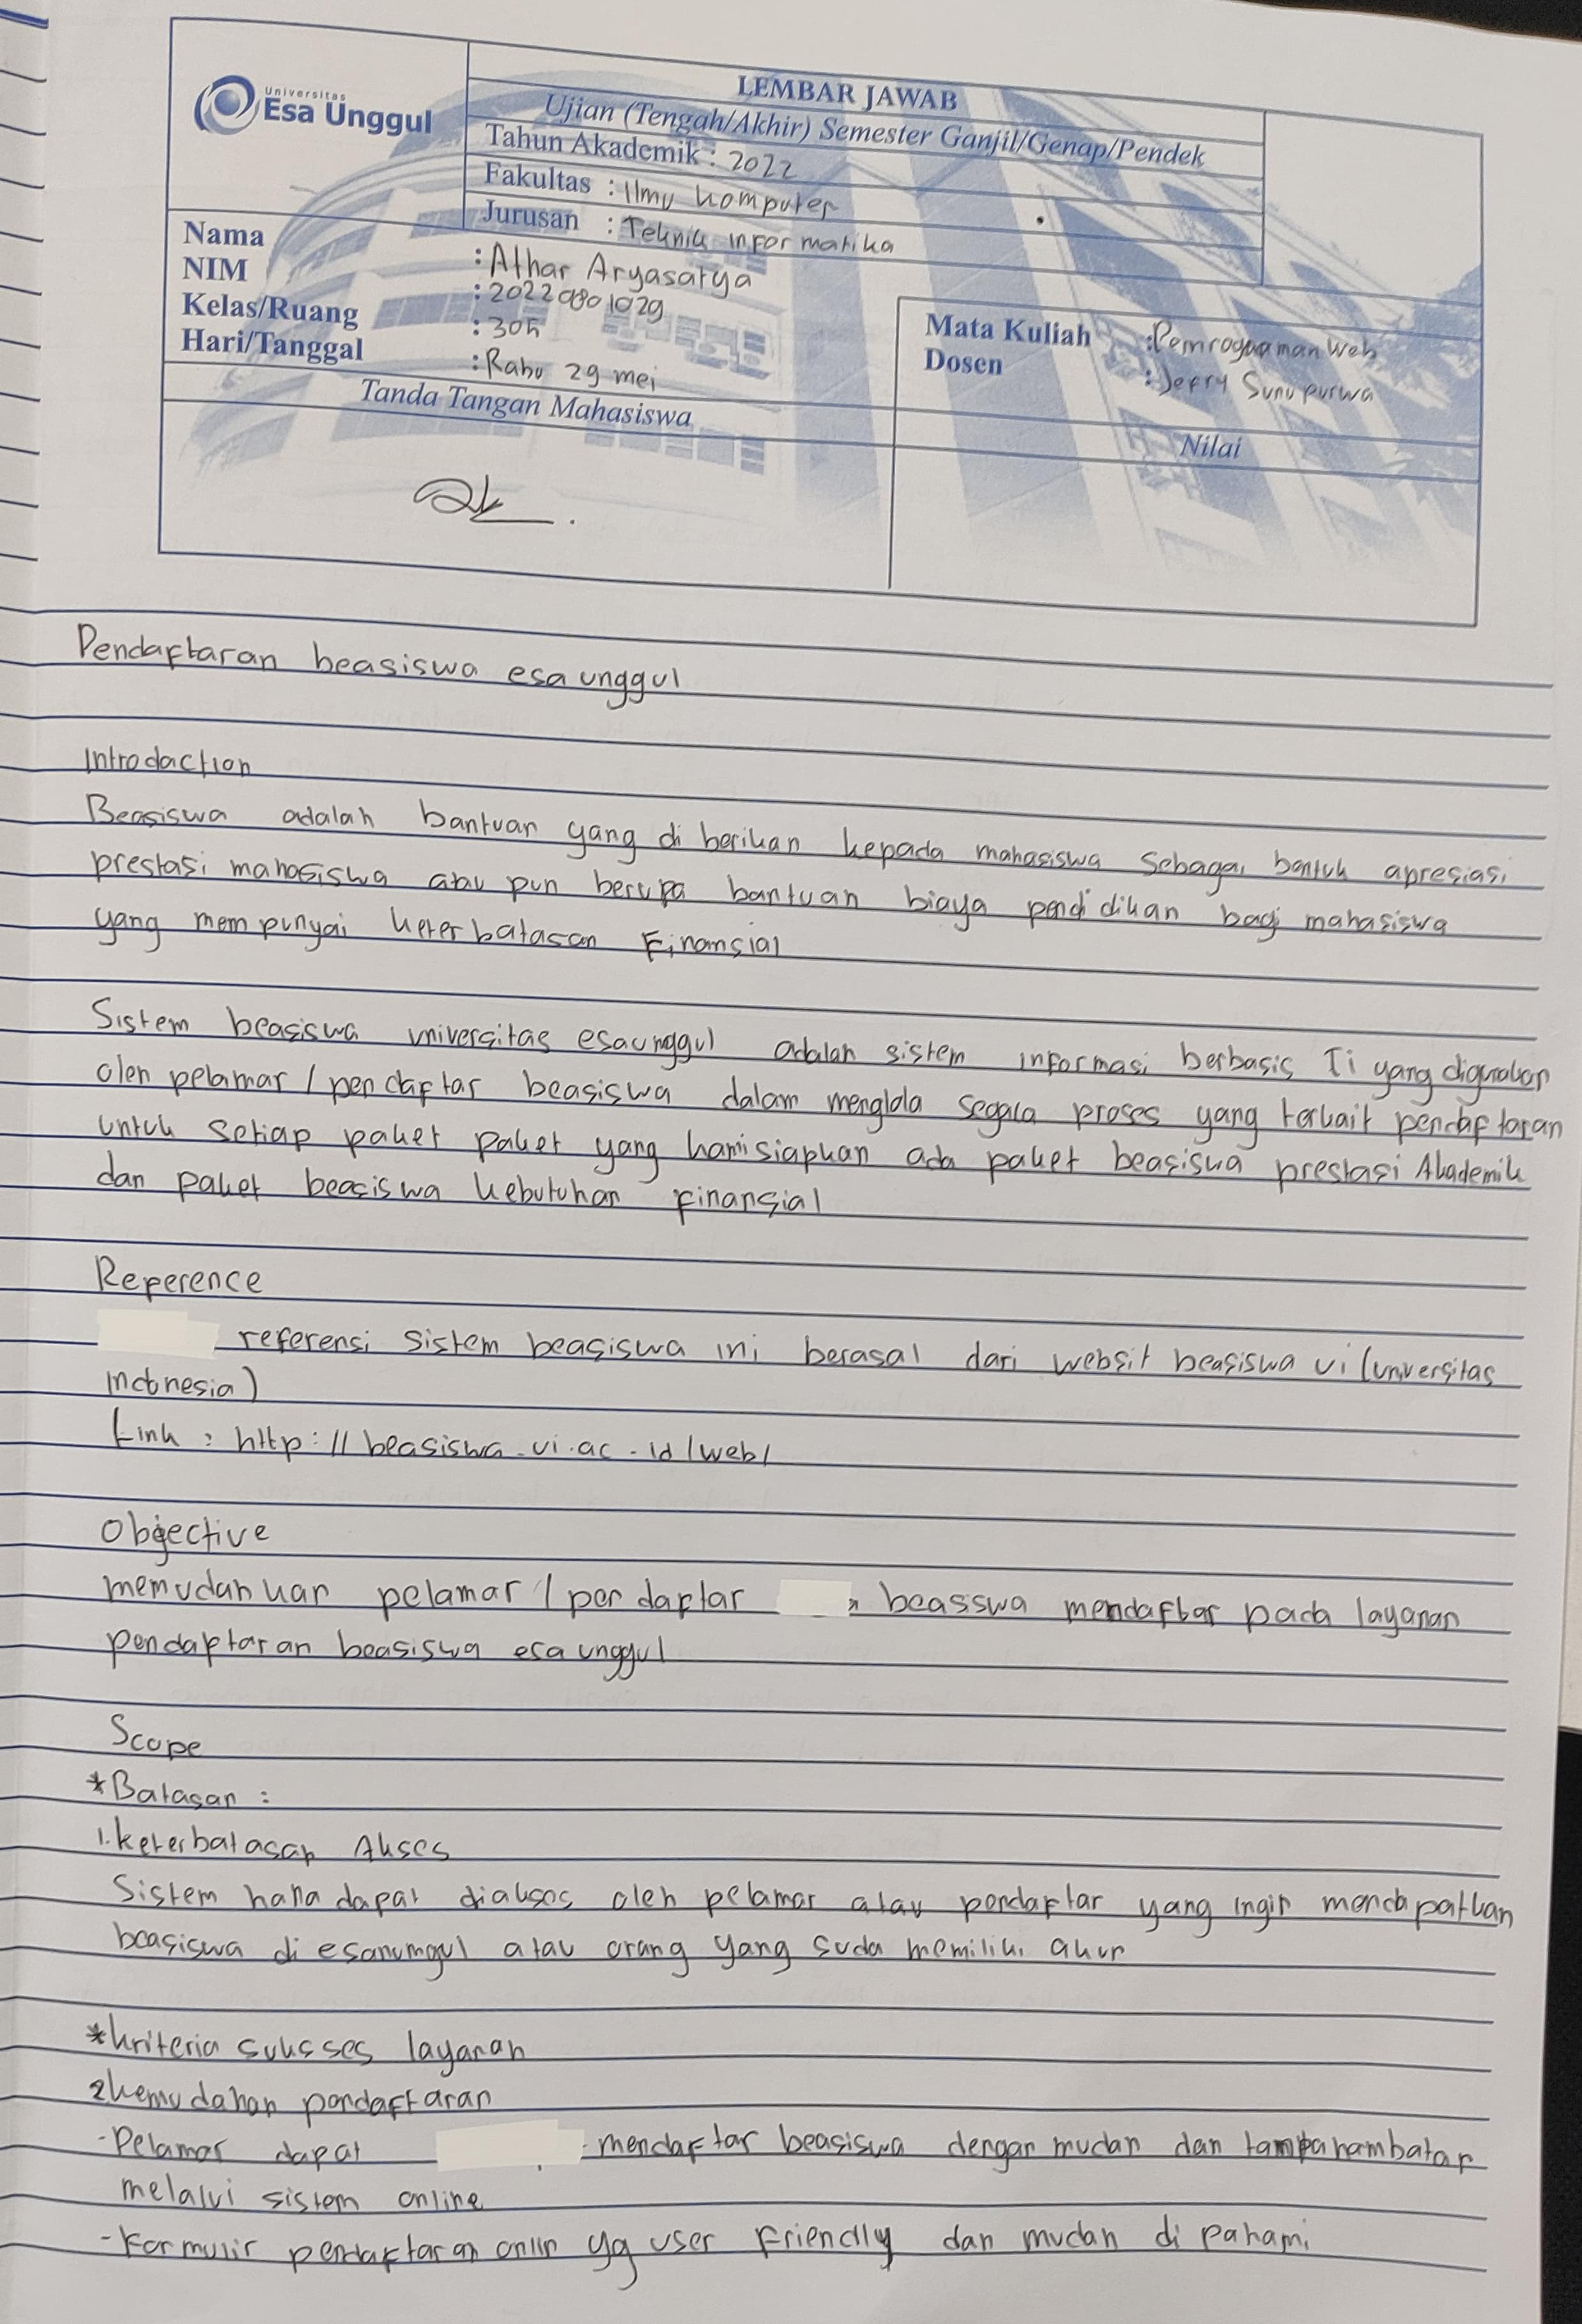 Universitas
Esa Unggul
LEMBAR JAWAB
Ujian (Tengah/Akhir) Semester Ganjil/Genap/Pendek
Tahun Akademik : 2022
Fakultas : Ilmu komputer
Jurusan : Teknik informatika
Nama : Athar Aryasatya
NIM : 20220801029
Kelas/Ruang : 305
Hari/Tanggal : Rabu 29 mei
Mata Kuliah : Pemrograman Web
Dosen : Jefry Sunupurwa
Tanda Tangan Mahasiswa
Nilai
Pendaftaran beasiswa esa unggul
Introdaction
Beasiswa adalah bantuan yang di berikan kepada mahasiswa sebagai bentuk apresiasi
prestasi mahasiswa atau pun berupa bantuan biaya pendidikan bagi mahasiswa
yang mempunyai keterbatasan Finansial
Sistem beasiswa universitas esaunggul adalah sistem informasi berbasis Ti yang digunakan
oleh pelamar / pendaftar beasiswa dalam menglola segala proses yang terkait pendaftaran
untuk setiap paket paket yang kami siapkan ada paket beasiswa prestasi Akademik
dan paket beasiswa kebutuhan finansial
Reference
referensi sistem beasiswa ini berasal dari websit beasiswa ui (universitas
indonesia)
Link : http://beasiswa.ui.ac.id/web/
Objective
memudahkan pelamar / pendaftar beasswa mendaftar pada layanan
pendaftaran beasiswa esa unggul
Scope
*Batasan :
1. keterbatasan Akses
Sistem hana dapat diakses oleh pelamar atau pendaftar yang ingin mendapatkan
beasiswa di esanumgul atau orang yang suda memiliki akun
*kriteria suksses layanan
2 kemudahan pendaftaran
- Pelamar dapat mendaftar beasiswa dengan mudah dan tampa hambatan
melalui sistem online
- Formulir pendaftaran onlin yg user Friendly dan mudah di pahami